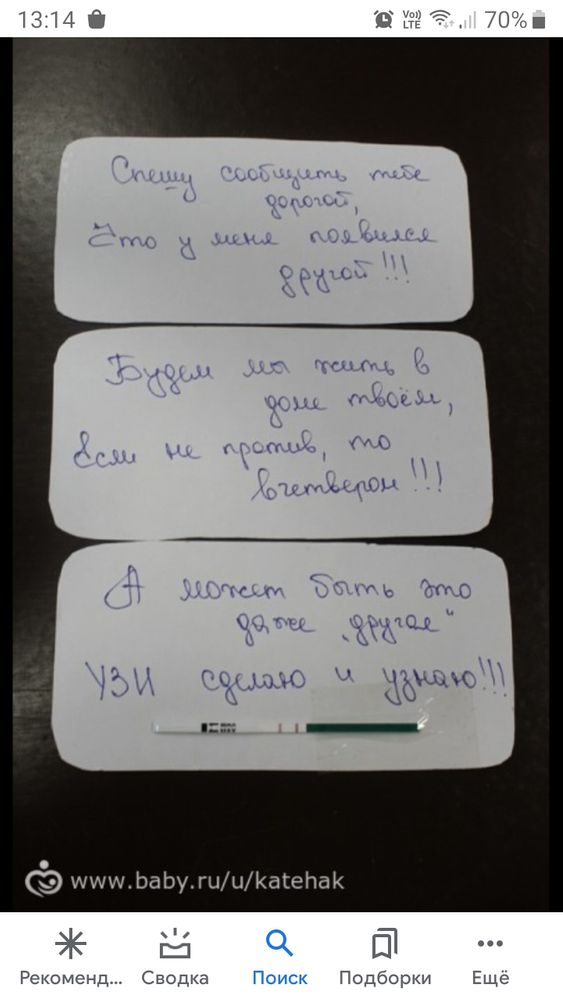 13:14
Vo))
LTE
70%
Спешу сообщить тебе
дорогой,
Что у меня появился
другой!!!
Будем мы жить в
доме твоём,
Если не против, то
вчетвером!!!
А может быть это
даже „другая“
УЗИ сделаю и узнаю!!!
www.baby.ru/u/katehak
Рекоменд...
Сводка
Поиск
Подборки
Ещё